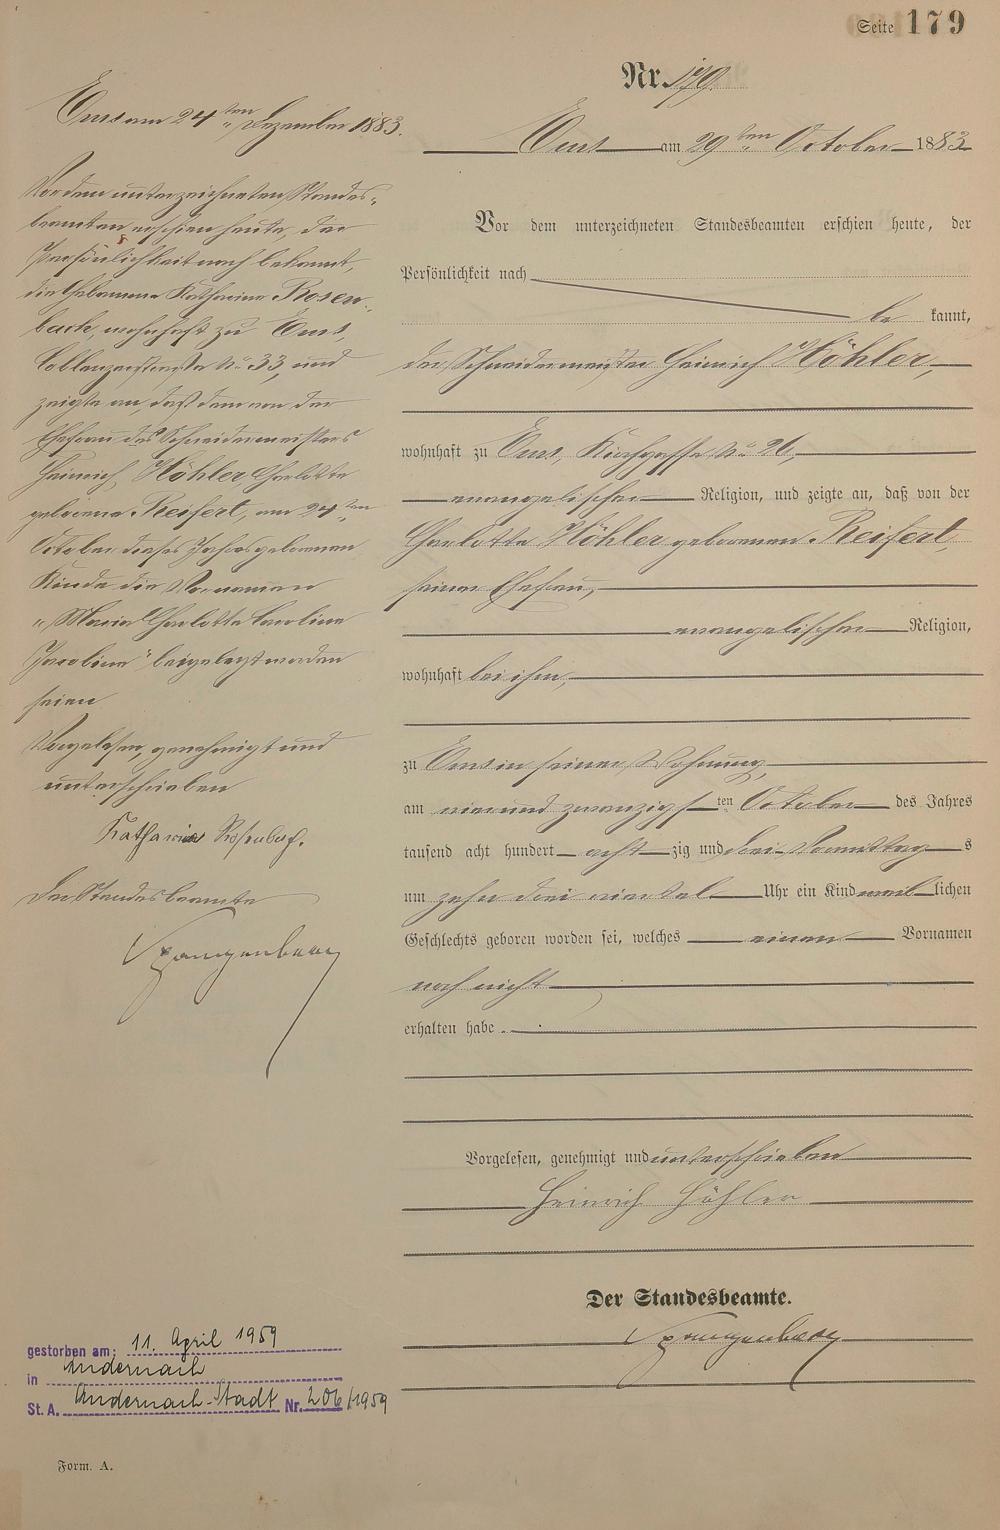 Seite 179
Nr. 179.
Ems am 29ten October 1883
Vor dem unterzeichneten Standesbeamten erschien heute, der
Persönlichkeit nach
be kannt,
der Schneidermeister Heinrich Höhler,
wohnhaft zu Ems, Kirchgasse No 26,
evangelischer Religion, und zeigte an, daß von der
Charlotte Höhler geborenen Reifert,
seiner Ehefrau,
evangelischer Religion,
wohnhaft bei ihm,
zu Ems in seiner Wohnung,
am vier und zwanzigsten October des Jahres
tausend acht hundert acht zig und drei Vormittags
um zehn drei viertel Uhr ein Kind weib lichen
Geschlechts geboren worden sei, welches einen Vornamen
noch nicht
erhalten habe.
Vorgelesen, genehmigt und unterschrieben
Heinrich Höhler
Der Standesbeamte.
Spangenberg
Ems am 24ten Dezember 1883.
Vor dem unterzeichneten Standes-
beamten erschien heute, der
Persönlichkeit nach bekannt,
die Hebamme Katharina Rosen-
bach, wohnhaft zu Ems,
Coblenzerstraße No 33, und
zeigte an, daß dem von der
Ehefrau des Schneidermeisters
Heinrich Höhler Charlotte
geborene Reifert, am 24ten
October dieses Jahres geborenen
Kinde die Vornamen
"Maria Charlotte Caroline
Jacobine" beigelegt worden
seien
Vorgelesen, genehmigt und
unterschrieben
Katharina Rosenbach.
Der Standesbeamte
Spangenberg
gestorben am: 11. April 1959
in Andernach
St. A. Andernach-Stadt Nr. 206/1959
Form. A.